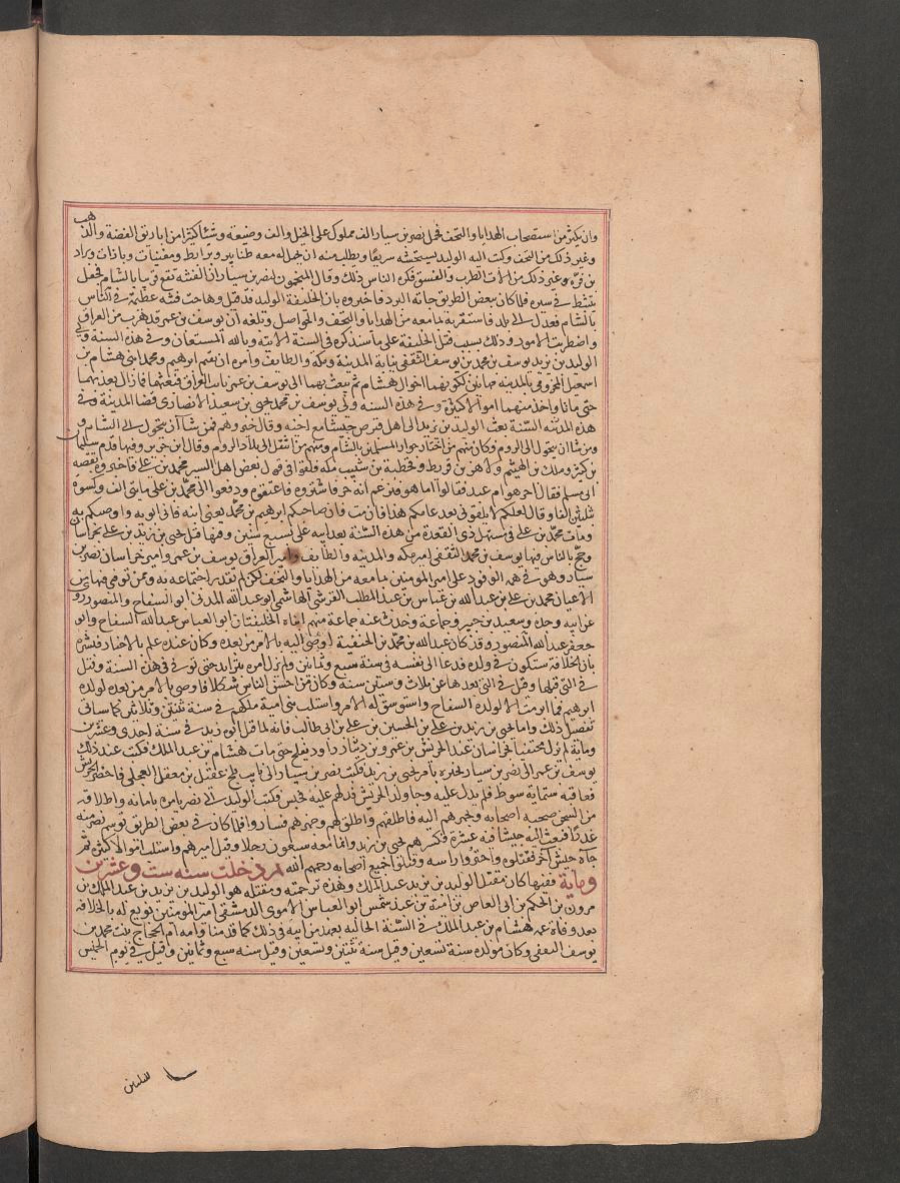 وان يكثر من استصحاب الهدايا والتحف فحمل نصر بن سيار الف مملوك على الخيل والف وصيفة وشئا كثيرا من اباريق الفضة والذهب
وغير ذلك من التحف وكتب اليه الوليد يستحثه سريعا ويطلب منه ان يحمل له معه طنابير وبرابط ومغنيات وبازات وبراد
ين فره وغير ذلك من الات الطرب والفسق فكره الناس ذلك وقال المنجمون لنصر بن سيار ان الفتنة تقع قريبا بالشام فجعل
يتثبط في سيره فلما كان ببعض الطريق جاته البرد فاخبروه بان الخليفة الوليد قد قتل وهاجت فتنة عظيمة في الناس
بالشام فعدل الى بلد فاستقر به بما معه من الهدايا والتحف والحواصل وبلغه ان يوسف بن عمر قد هرب من العراق
واضطربت الامور وذلك بسبب قتل الخليفة على ما سنذكره في السنة الاتية وبالله المستعان وفي هذه السنة ولى
الوليد بن يزيد يوسف بن محمد بن يوسف الثقفي نيابة المدينة ومكة والطايف وامره ان يقيم ابرهيم ومحمد ابني هشام بن
اسمعيل المخزومي بالمدينة مهانين لكونهما اخوال هشام ثم يبعث بهما الى يوسف بن عمر نايب العراق فبعثهما فما زال يعذبهما
حتى ماتا واخذ منهما اموالا كثيرة وفي هذه السنه ولى يوسف بن محمد يحيى بن سعيد الانصاري قضا المدينة وفي
هذه السنة بعث الوليد بن يزيد الى اهل قبرص جيشا مع اخيه وقال خيروهم فمن شا ان يتحول الى الشام
ومن شا ان يتحول الى الروم فكان منهم من اختار جوار المسلمين بالشام ومنهم من انتقل الى بلاد الروم وقال ابن جرير وفيها قدم سليمان
بن كثير وملك بن الهيثم ولاهز بن قريط وقحطبة بن شبيب مكه فلقوا في قول بعض اهل السير محمد بن علي فاخبروه بقصه
ابي مسلم فقال احر هو ام عبد فقالوا اما هو فيزعم انه حر فاشتروه فاعتقوه ودفعوا الى محمد بن علي مايتى الف وكسوة
ثلثين الفا وقال لعلكم لا تلقوني بعد عامكم هذا فان مت فان صاحبكم ابرهيم بن محمد يعني ابنه فاني اثق به واوصيكم به
ومات محمد بن علي في مستهل ذي القعدة من هذه السنة بعد ابيه على بسبع سنين وفيها قتل يحيى بن زيد بن علي بخراسان
وحج بالناس فيها يوسف بن محمد الثقفي امير مكه والمدينه والطايف وامير العراق يوسف بن عمر وامير خراسان نصر بن
سيار وهو في همة الوفود على امير المومنين بما معه من الهدايا والتحف لكن لم يقدر اجتماعه به وممن توفي فيها من
الاعيان محمد بن علي بن عبد الله بن عباس بن عبد المطلب القرشي الهاشمي ابو عبد الله المدني ابو السفاح والمنصور روى
عن ابيه وجده وسعيد بن جبير وجماعة وحدث عنه جماعة منهم ابناه الخليفتان ابو العباس عبد الله السفاح وابو
جعفر عبد الله المنصور وقد كان عبد الله بن محمد بن الحنفية اوصى اليه بالامر من بعده وكان عنده علم بالاخبار فبشره
بان الخلافة ستكون في ولده فدعا الى نفسه في سنة سبع وثمانين ولم يزل امره يتزايد حتى توفي في هذه السنة وقيل
في التي قبلها وقيل في التي بعدها عن ثلاث وستين سنة وكان من احسن الناس شكلا فاوصى بالامر من بعده لولده
ابرهيم فما ابرم الامر الا لولده السفاح واستوسق له الامر واستلب بني امية ملكهم في سنة ثنتين وثلاثين كما سياتى
تفصيل ذلك واما يحيى بن زيد بن علي بن الحسين بن علي بن ابي طالب فانه لما قتل ابوه زيد في سنة احدى وعشرين
وماية لم يزل مختفيا بخراسان عند الحريش بن عمرو بن داود ببلخ حتى مات هشام بن عبد الملك فكتب عند ذلك
يوسف بن عمر الى نصر بن سيار يخبره بامر يحيى بن زيد فكتب نصر بن سيار الى نايب بلخ عقيل بن معقل العجلي فاحضر الحريش
فعاقبه ستماية سوط فلم يدل عليه وجا ولد الحريش فدلهم عليه فحبس فكتب الوليد الى نصر يامره بامانه واطلاقه
من السجن صحبه اصحابه وجهزهم اليه فاطلقهم واطلق لهم وجهزهم فساروا فلما كان في بعض الطريق توسم نصر منه
غدرا فبعث اليه جيشا فيه عشرة فكسرهم يحيى بن زيد وانما معه سبعون رجلا وقتل اميرهم واستلب اموالا كثيرة ثم
جاه جيش اخر فقتلوه واحتزوا راسه وقتلوا جميع اصحابه رحمهم الله ثم دخلت سنه ست وعشرين
وماية ففيها كان مقتل الوليد بن يزيد بن عبد الملك وهذه ترجمته ومقتله هو الوليد بن يزيد بن عبد الملك بن
مرون بن الحكم بن ابي العاص بن امية بن عبد شمس ابو العباس الاموي الدمشقي امير المومنين بويع له بالخلافة
بعد وفاة عمه هشام بن عبد الملك في السنة الخالية بعهد من ابيه في ذلك كما قدمنا وامه ام الحجاج بنت محمد بن
يوسف الثقفي وكان مولده سنة تسعين وقيل سنة ثنتين وتسعين وقيل سنه سبع وثمانين وقتل في يوم الخميس
لليلتين